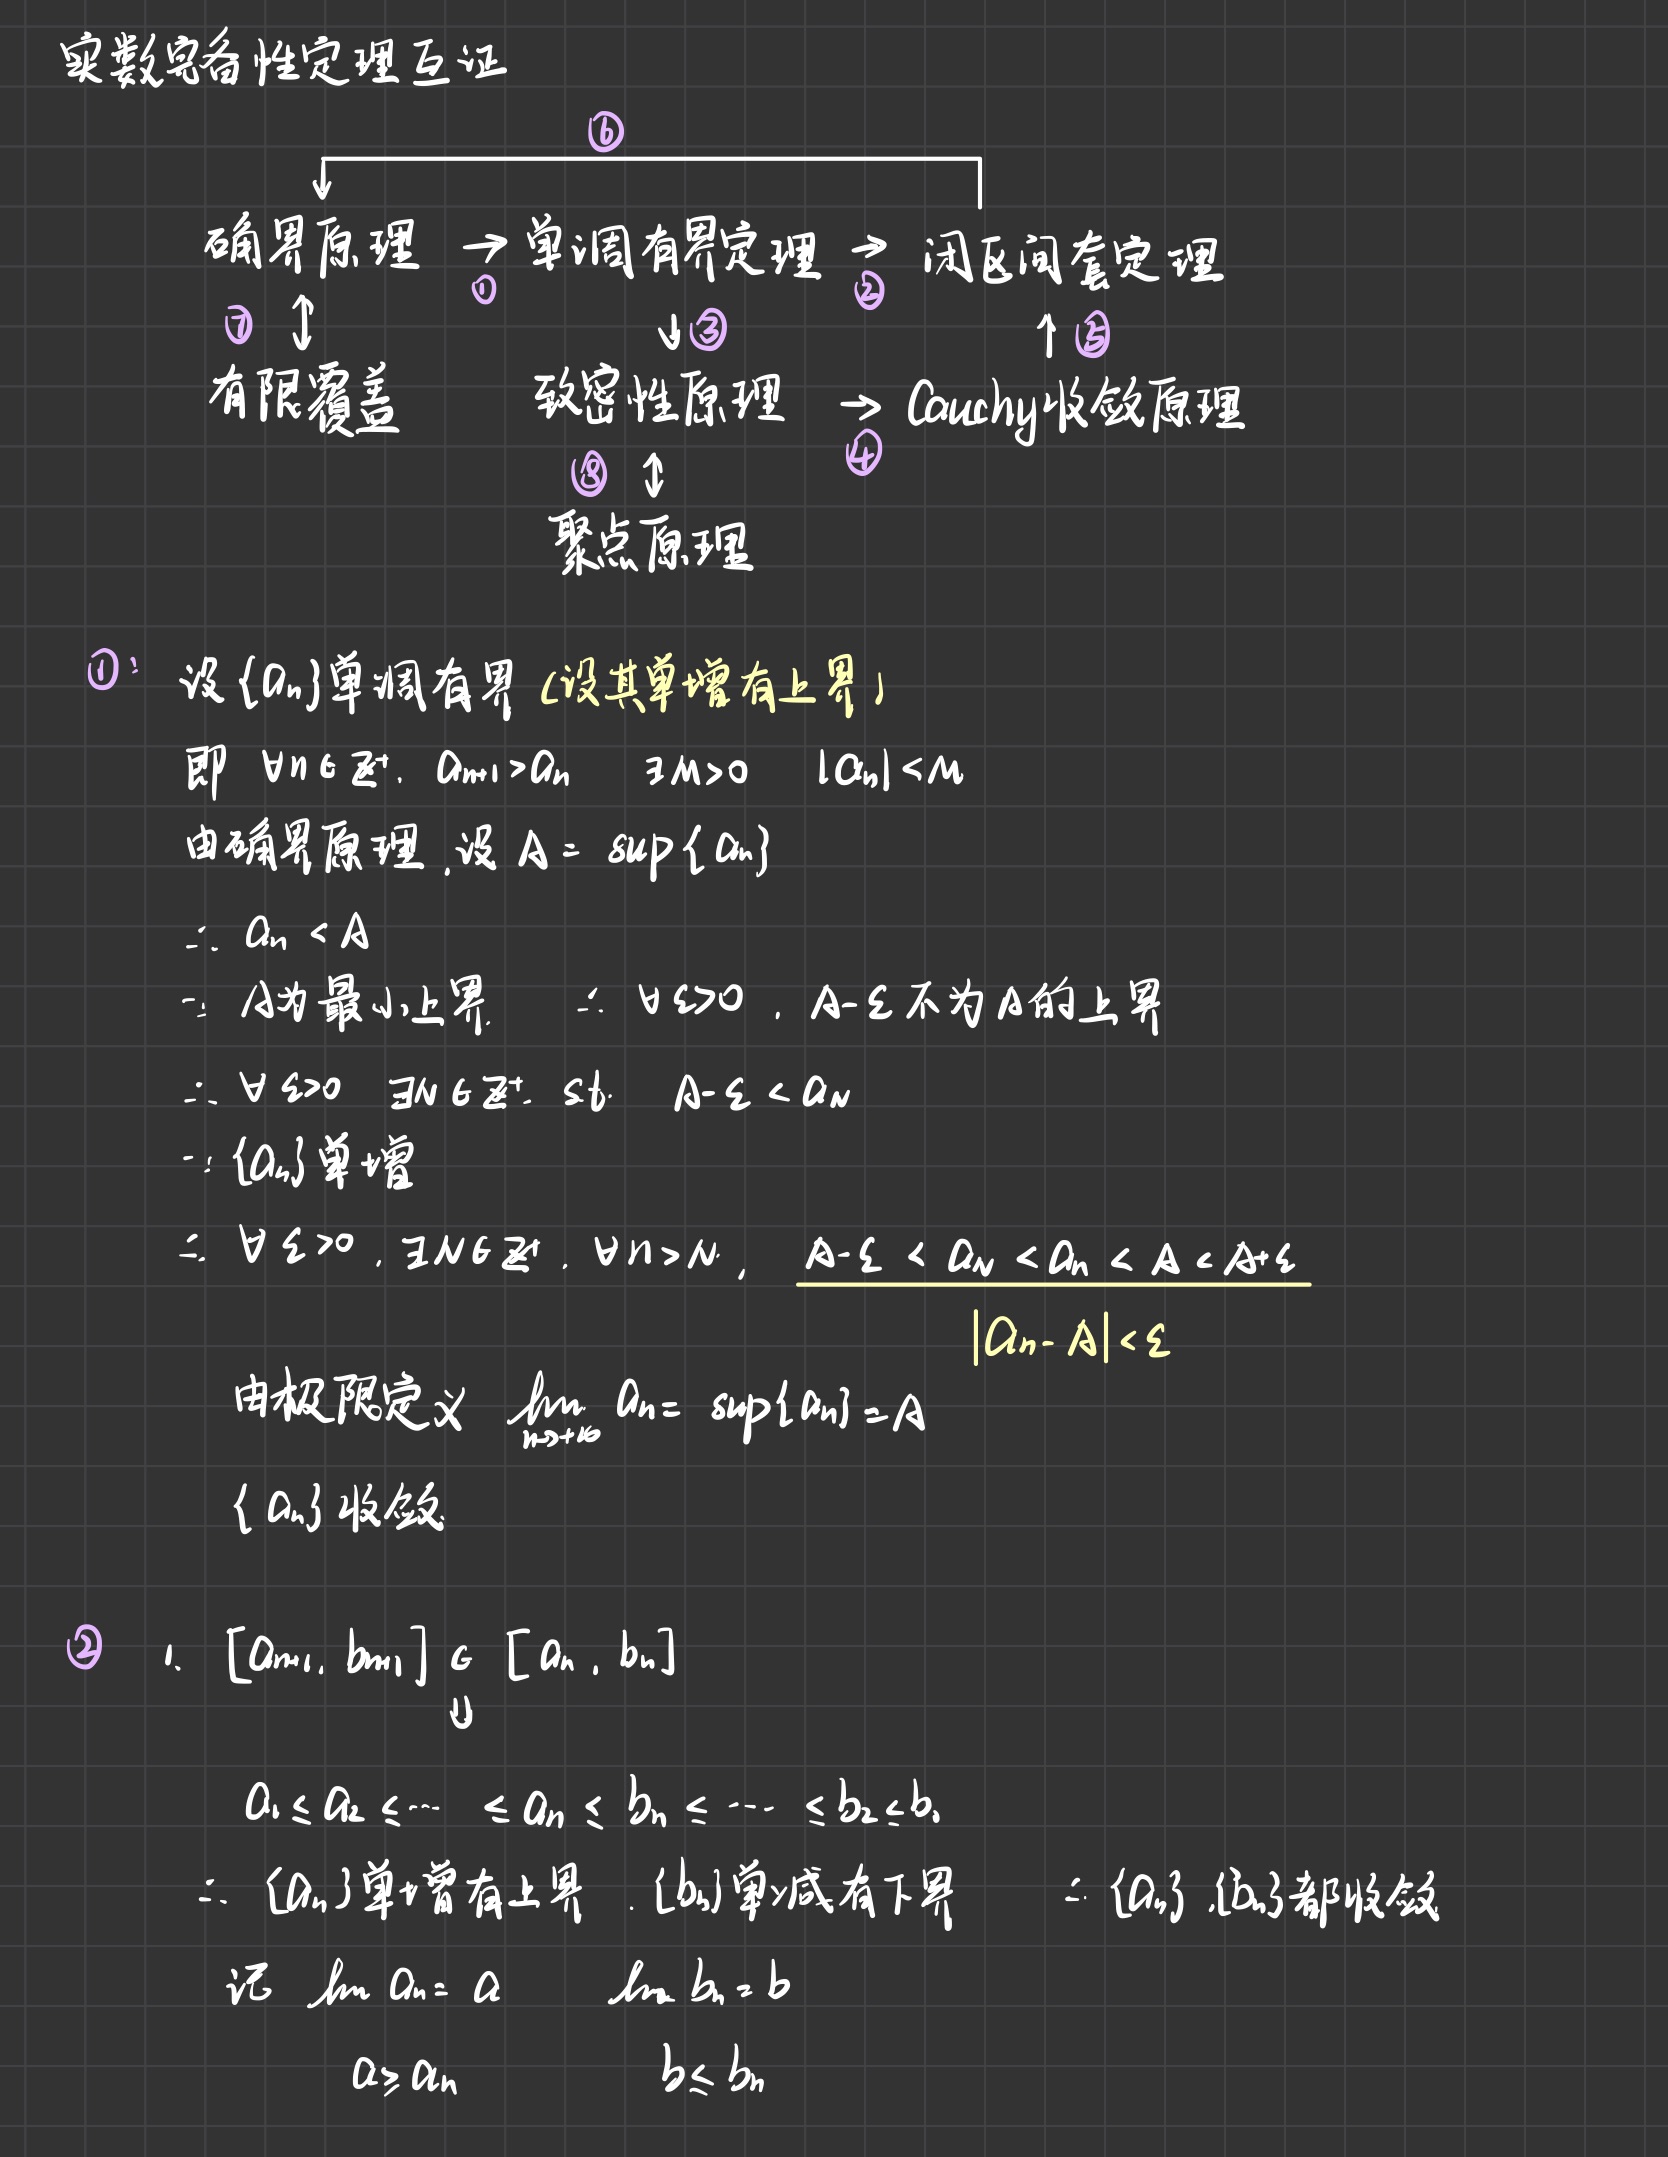 实数完备性定理互证
⑥
确界原理 → 单调有界定理 → 闭区间套定理
① ②
⑦ ↕ ↓ ③ ↑ ⑤
有限覆盖 致密性原理 → Cauchy收敛原理
④
⑧ ↕
聚点原理
①: 设{aₙ}单调有界(设其单增有上界)
即 ∀n∈Z⁺, aₙ₊₁>aₙ ∃M>0 |aₙ|<M
由确界原理,设 A = sup{aₙ}
∴ aₙ < A
∵ A为最小上界 ∴ ∀ε>0, A-ε不为A的上界
∴ ∀ε>0 ∃N∈Z⁺ st. A-ε < a_N
∵ {aₙ}单增
∴ ∀ε>0, ∃N∈Z⁺, ∀n>N, A-ε < a_N < aₙ < A < A+ε
|aₙ-A|<ε
由极限定义 lim n→+∞ aₙ = sup{aₙ} = A
{aₙ}收敛
② 1. [aₙ₊₁, bₙ₊₁] ∈ [aₙ, bₙ]
⇓
a₁ ≤ a₂ ≤ ··· ≤ aₙ ≤ bₙ ≤ ··· ≤ b₂ ≤ b₁
∴ {aₙ}单增有上界, {bₙ}单减有下界 ∴ {aₙ},{bₙ}都收敛
记 lim aₙ = a lim bₙ = b
a ≥ aₙ b ≤ bₙ